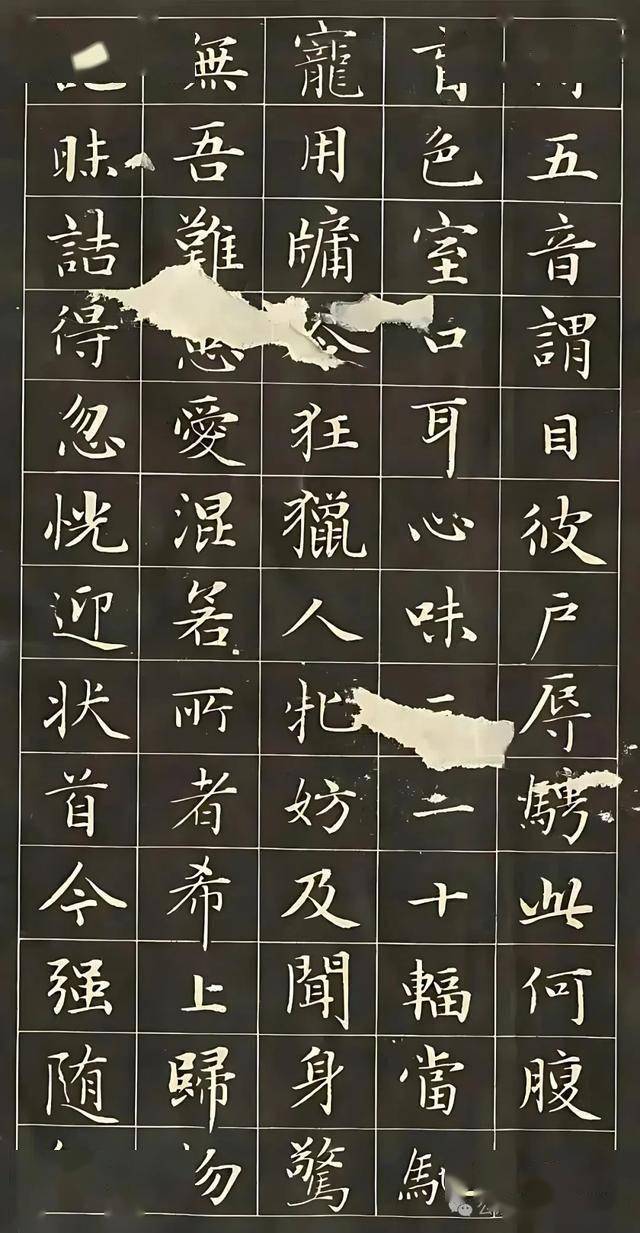 五音謂目彼户辱騁此何腹
盲色室口耳心味二十輻當馳
寵用牖狂獵人牝妨及聞身驚
無吾難愛混若所者希上歸勿
昧詰得忽恍迎狀首今强随